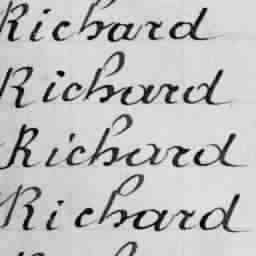 Richard
Richard
Richard
Richard